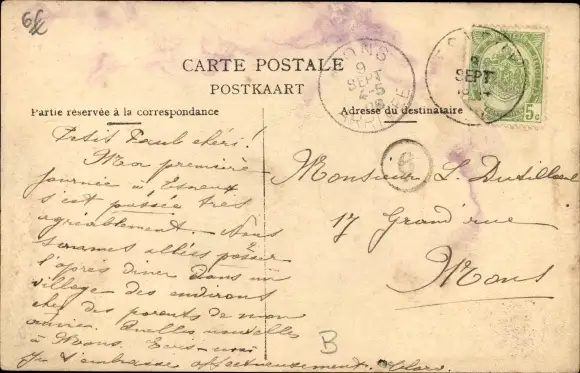 6
CARTE POSTALE
POSTKAART
Partie réservée à la correspondance
Adresse du destinataire
MONS
9
SEPT
SEPT
5c
6
Petit chéri!
Ma première
journée à Esneux
s'est passée très
agréablement. Nous
sommes allées passer
l'après diner dans un
village des environs
chez des parents de mon
Quelles nouvelles
à Mons. Ecris-moi
Je t'embrasse affectueusement.
Monsieur L.
17 Grand'rue
Mons
B